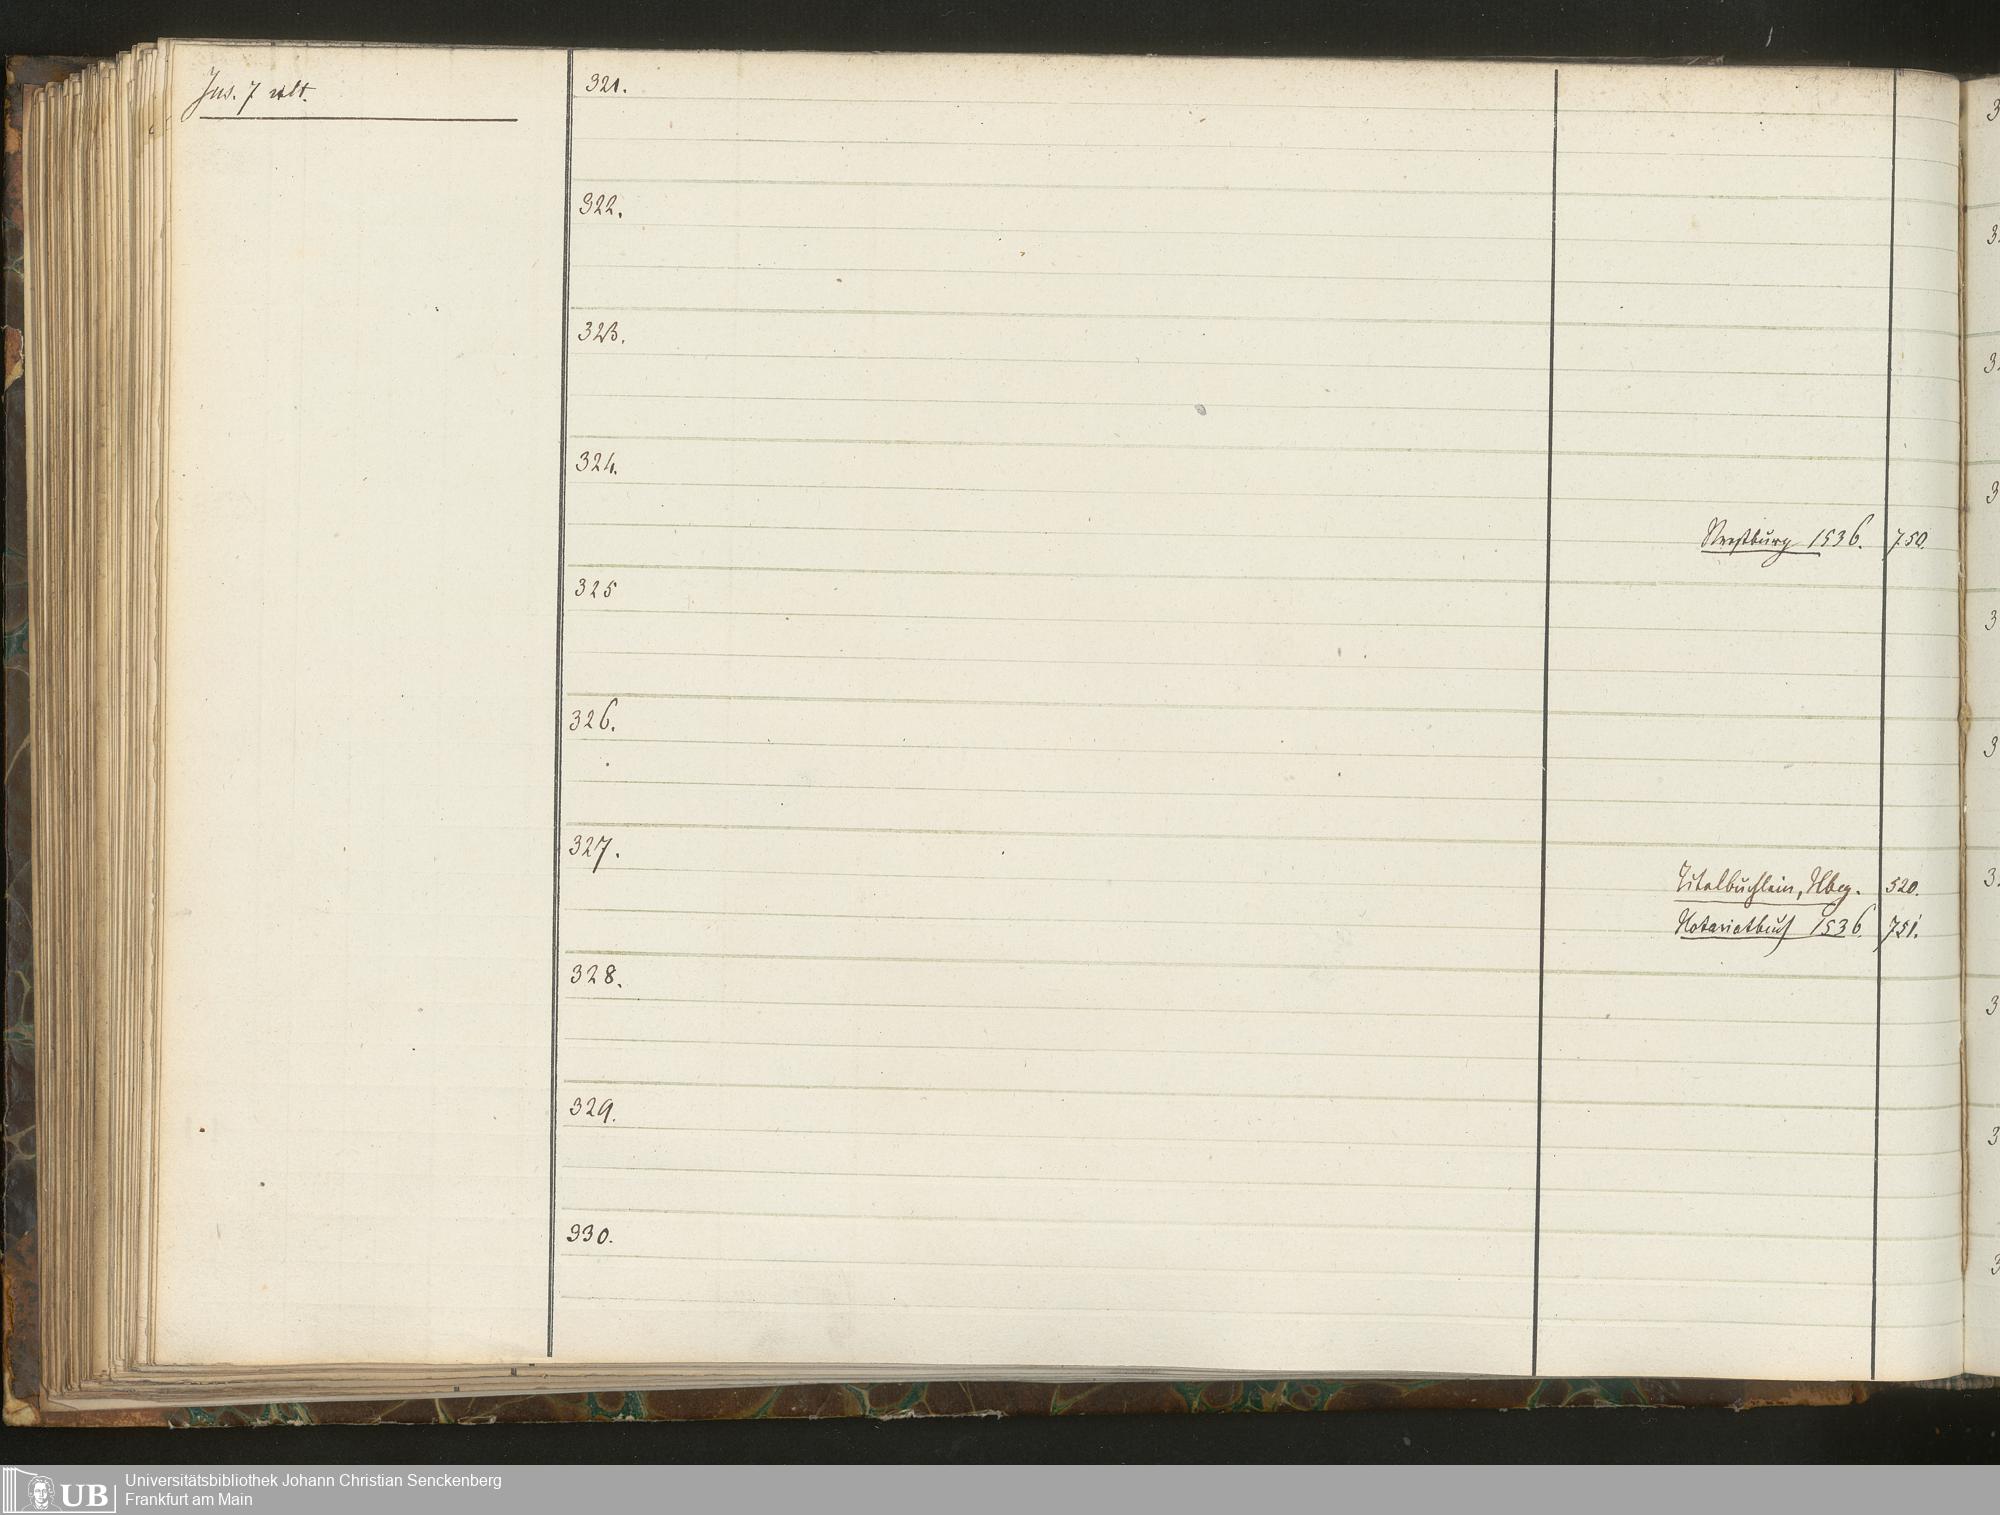 Jus. 7 alt.
321.
322.
323.
324.
Straßburg 1536. 750.
325
326.
327.
Titelbüchlein, Nbg. 520.
Notariatbuch 1536. 751.
328.
329.
330.
UB
Universitätsbibliothek Johann Christian Senckenberg
Frankfurt am Main